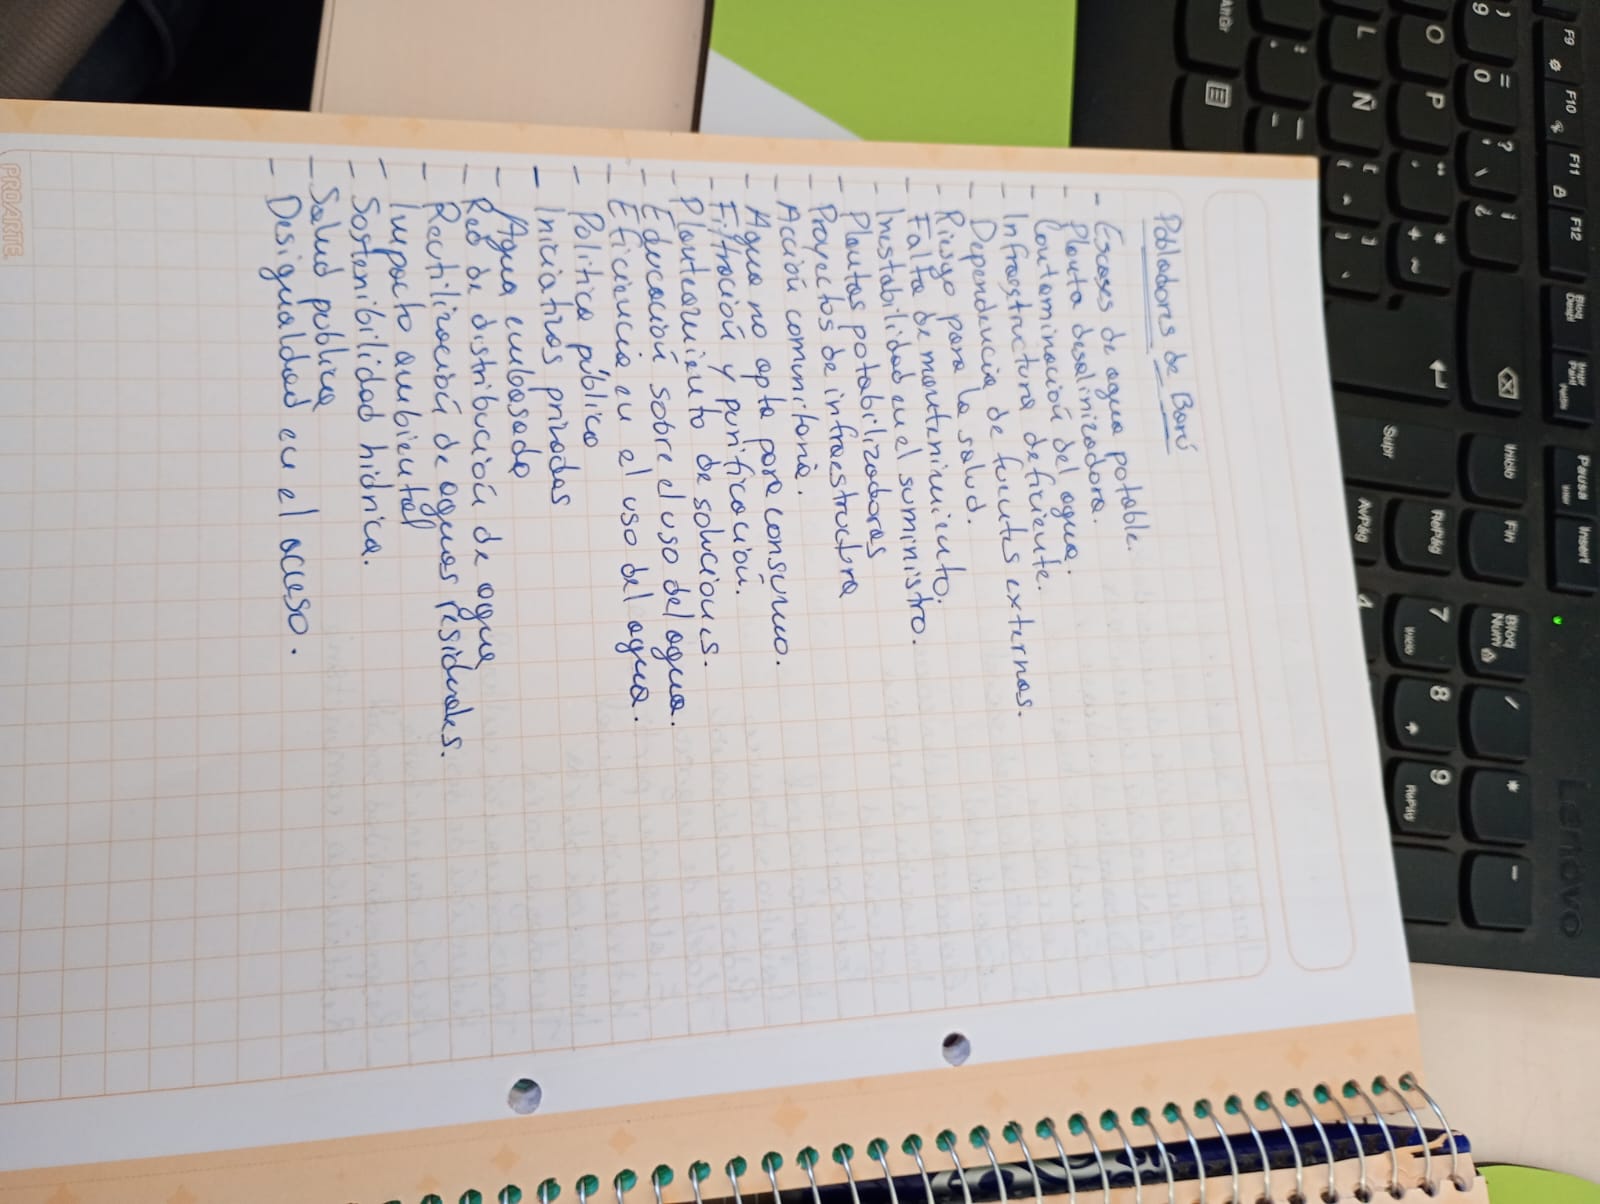 Pobladores de Barú
- Escases de agua potable.
- Planta desalinizadora.
- Contaminación del agua.
- Infraestructura deficiente.
- Dependencia de fuentes externas.
- Riesgo para la salud.
- Falta de mantenimiento.
- Inestabilidad en el suministro.
- Plantas potabilizadoras
- Proyectos de infraestructura
- Acción comunitaria.
- Agua no apta para consumo.
- Filtración y purificación.
- Planteamiento de soluciones.
- Educación sobre el uso del agua.
- Eficiencia en el uso del agua.
- Política pública
- Iniciativas privadas
- Agua embasada
- Red de distribución de agua
- Reutilización de aguas residuales.
- Impacto ambiental
- Sostenibilidad hídrica.
- Salud pública
- Desigualdad en el acceso.
PROARTE
F9
F10
F11
F12
Impr
Pausa
Insert
Supr
Inicio
Fin
RePág
AvPág
Bloq
Num
7
Inicio
8
9
RePág
/
*
-
AltGr
O
P
L
Ñ
9
0
Lenovo